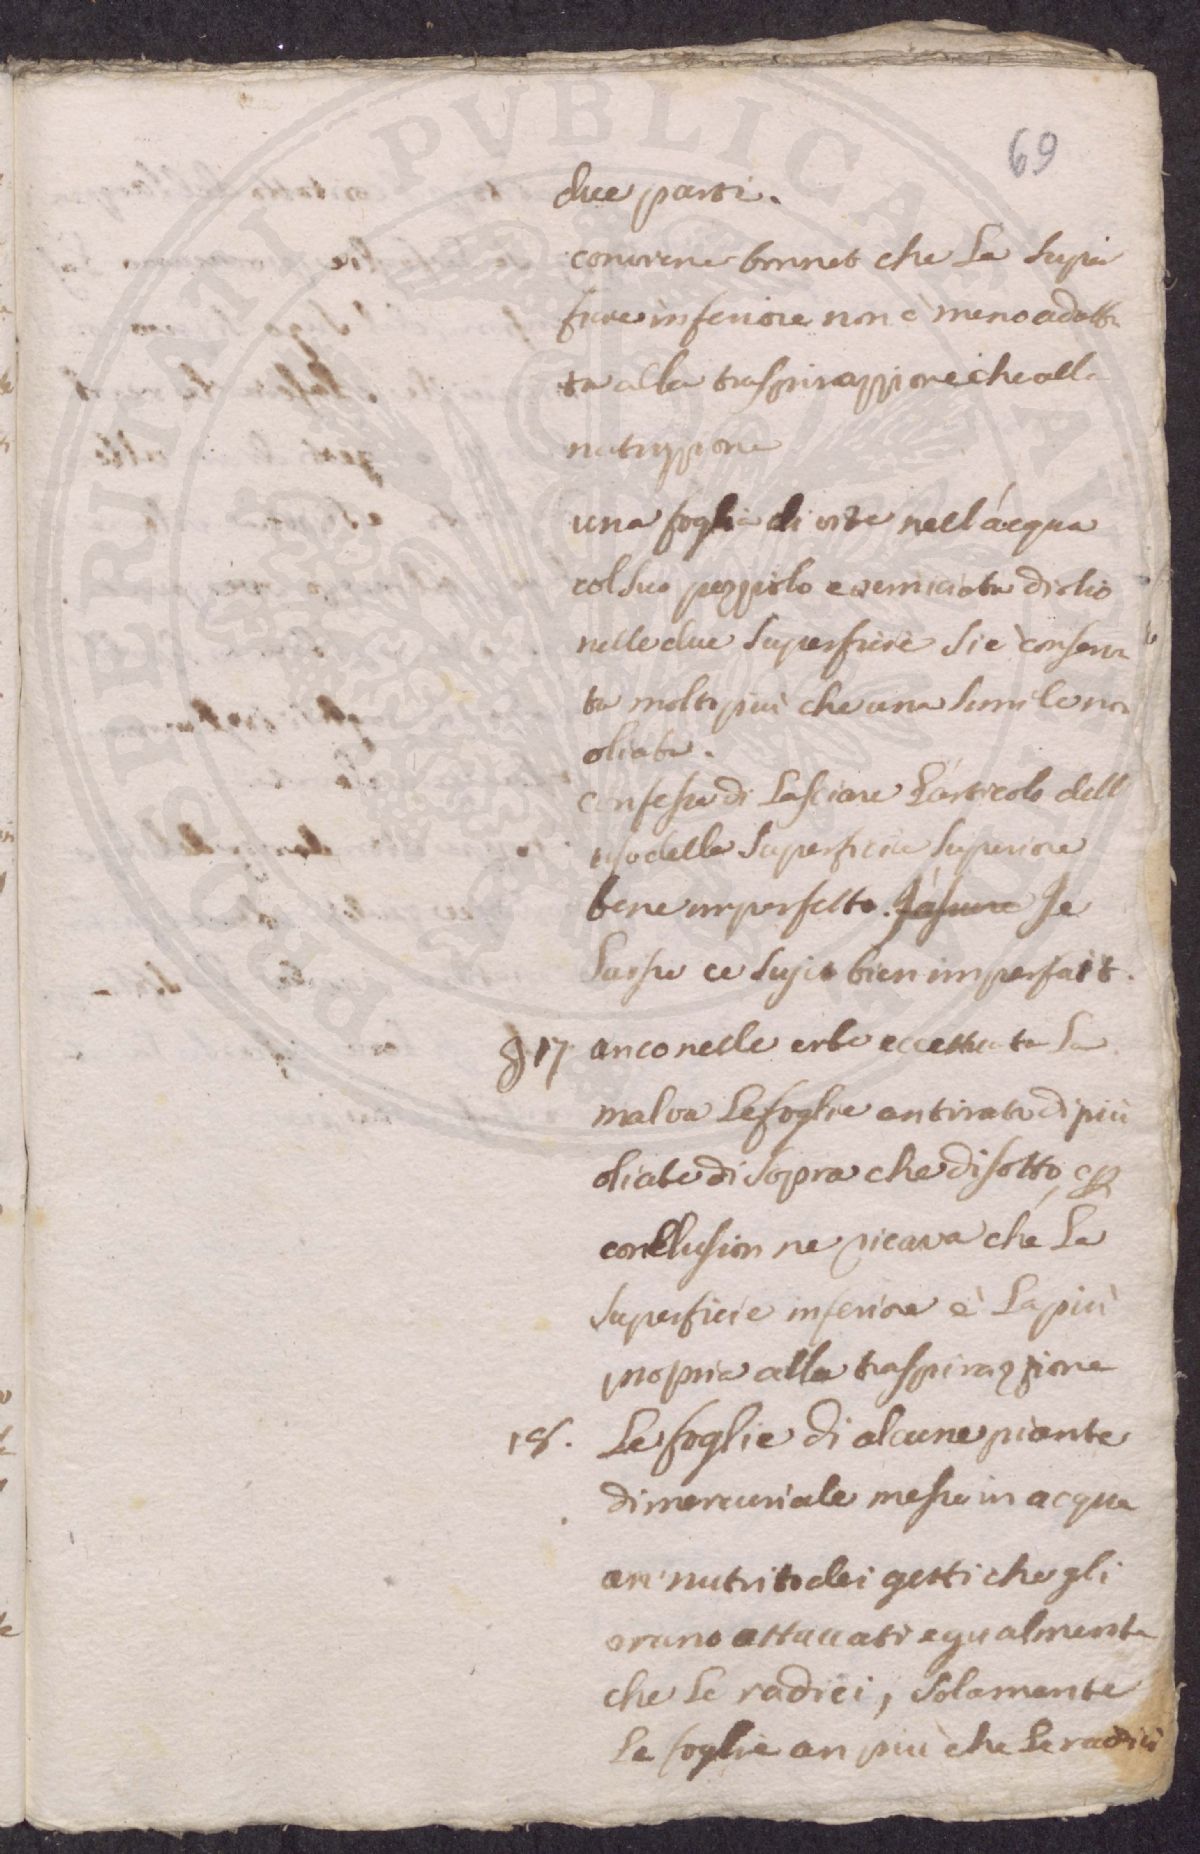 69
due parti.
conviene bonnet che La Supei
ficie inferiore non è meno adatta
ta alla traspirazzione che alla
nutrizzione
una foglia di vite nell'acqua
col suo pezzislo e verniciata di olio
nelle due superficie si è conserva
ta molto più che una simile non
oliata.
confessa di Lasciare L'articolo dell
uso della superficie superiore
bene imperfetto. J'assure Je
Laisse ce sujet bien imperfait.
§ 17 anco nelle erbe eccettuata La
malva Le foglie an tirato di più
oliate di sopra che di sotto,
conclusion ne ricava che La
superficie inferiore è La più
propria alla traspirazzione
18. Le foglie di alcune piante
di mercuriale messe in acqua
an nutrito dei getti che gli
erano attaccati egualmente
che Le radici, solamente
Le foglie an più che Le radici